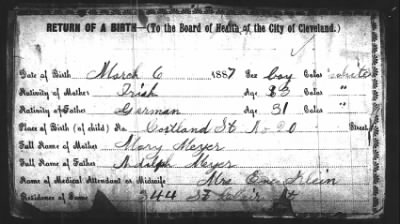 RETURN OF A BIRTH—(To the Board of Health of the City of Cleveland.)
Date of Birth March 6 1887 Sex boy Color white
Nativity of Mother Irish Age 33 Color "
Nativity of Father German Age 31 Color "
Place of Birth (of child) No. Cortland St No 20 Street
Full Name of Mother Mary Meyer
Full Name of Father Meyer
Name of Medical Attendant or Midwife Mrs Klein
Residence of Same 344 St Clair St